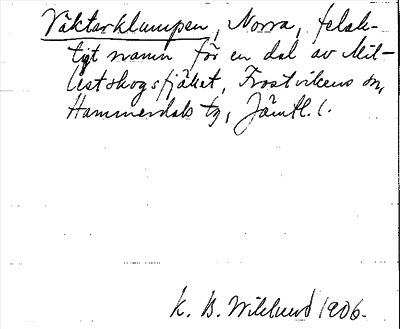 Väktarklumpen, Norra, felak-
tigt namn för en del av Mit-
lestskogsfjället, Frostvikens sn,
Hammerdals tg, Jämtl. l.
K. B. Wiklund 1906.